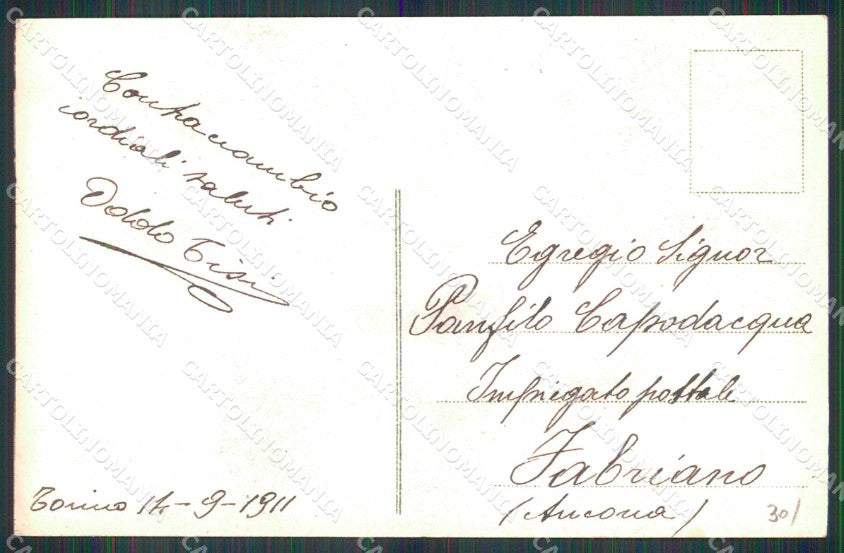 Contracambio
cordiali saluti
Torino 14-9-1911
Egregio Signor
Panfilo Capodacqua
Impiegato postale
Fabriano
(Ancona)
30/
CARTOLINOMANIA